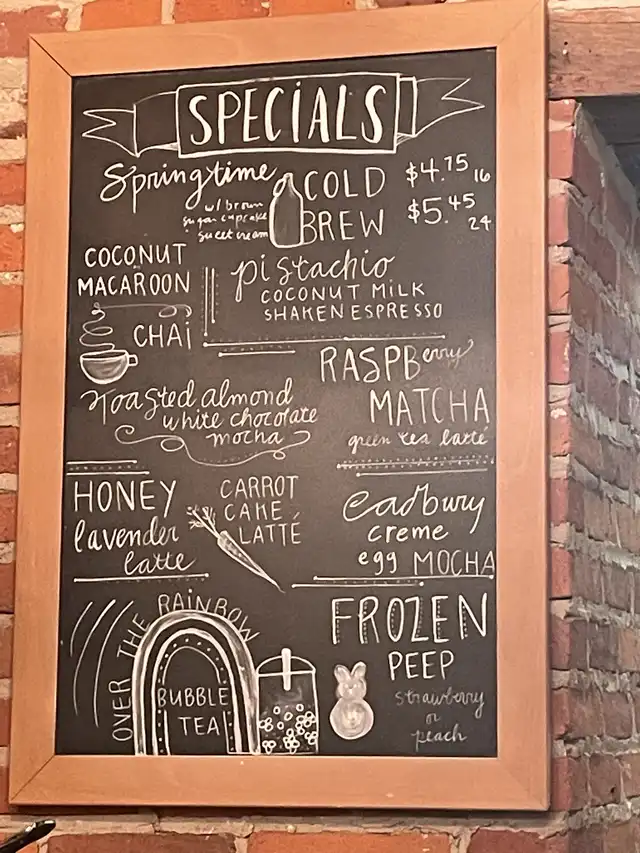 SPECIALS
Springtime
w/ brown
sugar cupcake
sweet cream
COLD
BREW
$4.75 16
$5.45 24
COCONUT
MACAROON
CHAI
pistachio
COCONUT MILK
SHAKEN ESPRESSO
RASPBerry
MATCHA
green tea latté
roasted almond
white chocolate
mocha
HONEY
lavender
latte
CARROT
CAKE
LATTÉ
cadbury
creme
egg MOCHA
OVER THE RAINBOW
BUBBLE
TEA
FROZEN
PEEP
strawberry
or
peach